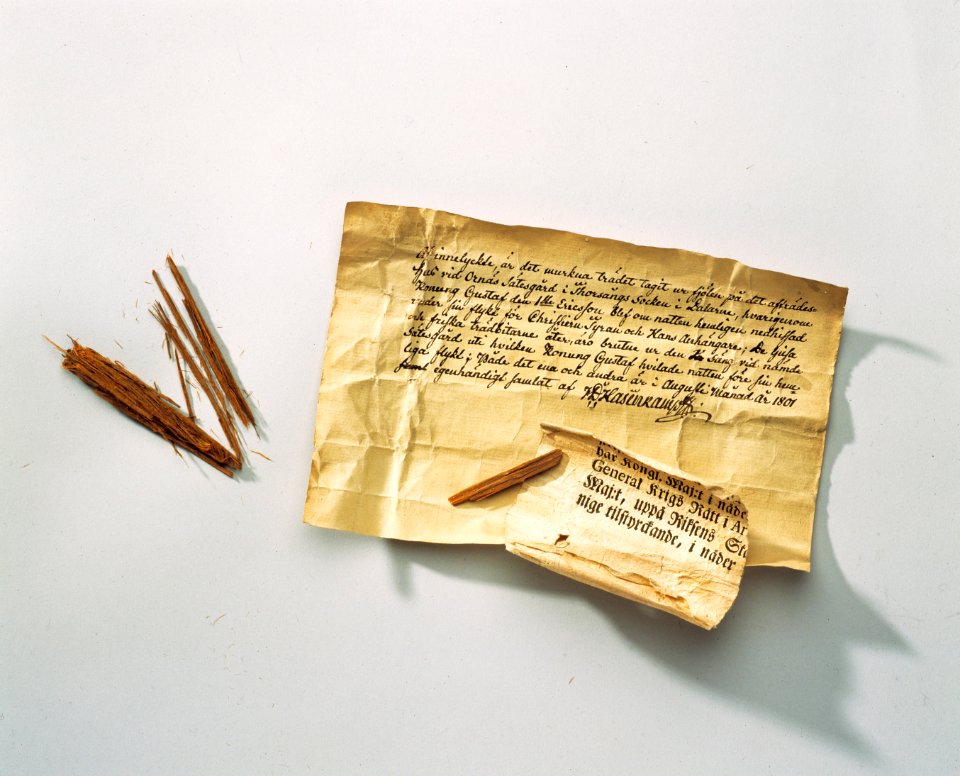 inneslyckte, är det murkna trädet tagit ur fjölen på det afträdes
hus vid Ornäs Sätesgård i Thorsångs Socken i Dalarne, hvarigenom
Konung Gustaf den 1ste Ericsson blef om natten hemligen nedhissad
under sin flykt för Christiern Tyran och Hans Anhängare; De
och friska trädbitarne åter, äro brutne ur den Säng vid nämde
Sätesgård uti hvilken Konung Gustaf hvilade natten före sin hem
liga flykt; Både det ena och andra är i Augusti Månad år 1801
egenhändigt samlat af
har Kongl. Maj:t i nåde
General Krigs Rätt i Ar
Maj:t, uppå Riksens Stä
nige tilstyrckande, i nåder